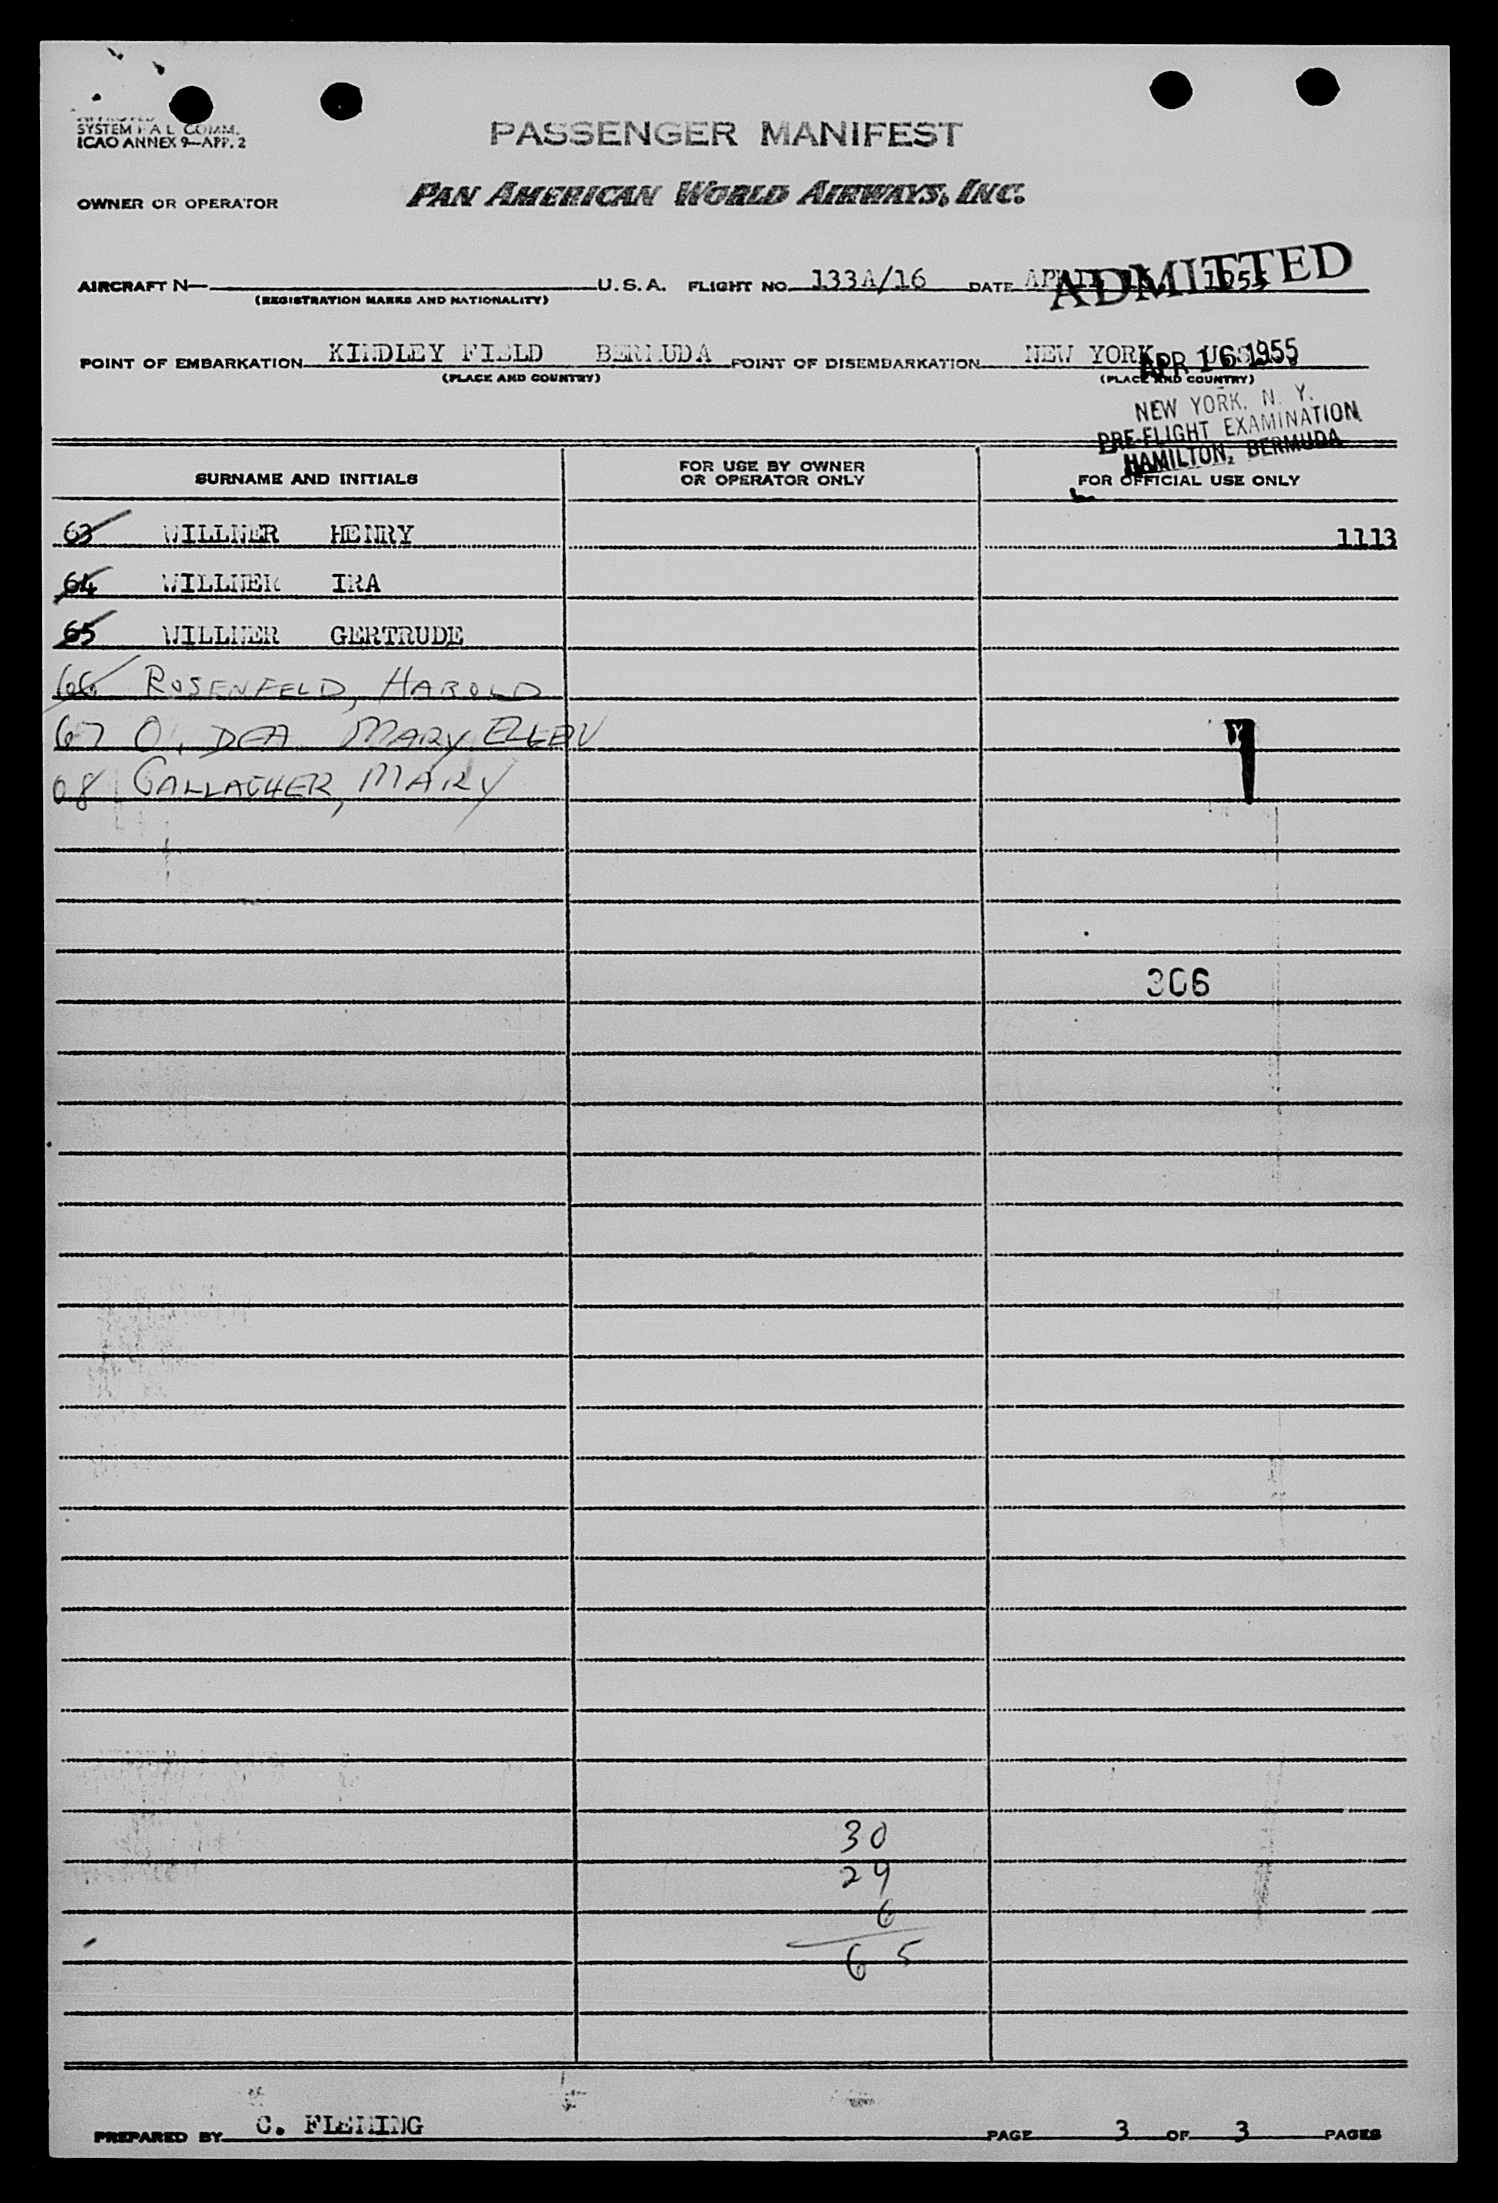 SYSTEM F A L COMM.
ICAO ANNEX 9—APP. 2
PASSENGER MANIFEST
OWNER OR OPERATOR
PAN AMERICAN WORLD AIRWAYS, INC.
AIRCRAFT N— U.S.A. FLIGHT NO. 133A/16 DATE 1955
(REGISTRATION MARKS AND NATIONALITY)
ADMITTED
POINT OF EMBARKATION KINDLEY FIELD BERMUDA POINT OF DISEMBARKATION NEW YORK
(PLACE AND COUNTRY) (PLACE AND COUNTRY)
APR 16 1955
NEW YORK, N. Y.
PRE-FLIGHT EXAMINATION
HAMILTON, BERMUDA
SURNAME AND INITIALS FOR USE BY OWNER OR OPERATOR ONLY FOR OFFICIAL USE ONLY
63 WILLNER HENRY 1113
64 WILLNER IRA
65 WILLNER GERTRUDE
66 ROSENFELD, HAROLD
67 O'DEA MARY ELLEN
68 GALLAGHER, MARY
306
30
29
6
65
PREPARED BY C. FLEMING PAGE 3 OF 3 PAGES